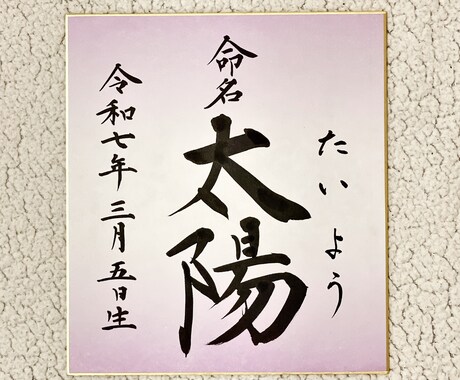 命名
太陽
たいよう
令和七年三月五日生